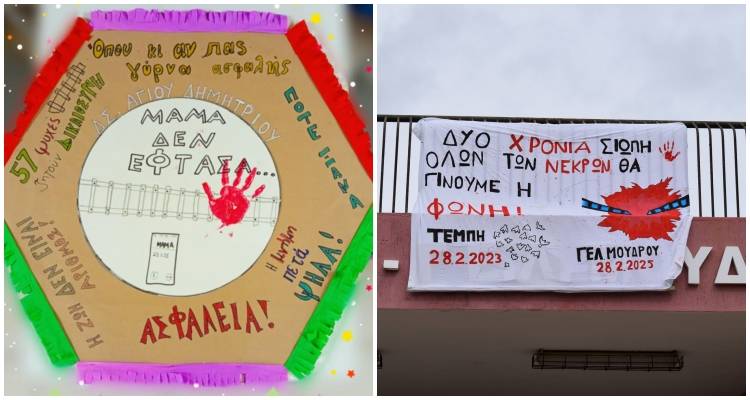 Όπου κι αν πας
γύρνα ασφαλής
57 ψυχές
ζητούν ΔΙΚΑΙΟΣΥΝΗ
ΔΣ. ΑΓΙΟΥ ΔΗΜΗΤΡΙΟΥ
ΜΑΜΑ
ΔΕΝ
ΕΦΤΑΣΑ...
ΠΟΤΕ ΞΑΝΑ
Η ΖΩΗ ΔΕΝ ΕΙΝΑΙ
ΑΡΙΘΜΟΣ!
ΜΑΜΑ
Η μνήμη
πετά
ΨΗΛΑ!
ΑΣΦΑΛΕΙΑ!
ΔΥΟ ΧΡΟΝΙΑ ΣΙΩΠΗ
ΟΛΩΝ ΤΩΝ ΝΕΚΡΩΝ ΘΑ
ΓΙΝΟΥΜΕ Η
ΦΩΝΗ!
ΤΕΜΠΗ
28.2.2023
ΓΕΛ ΜΟΥΔΡΟΥ
28.2.2025
ΥΔ